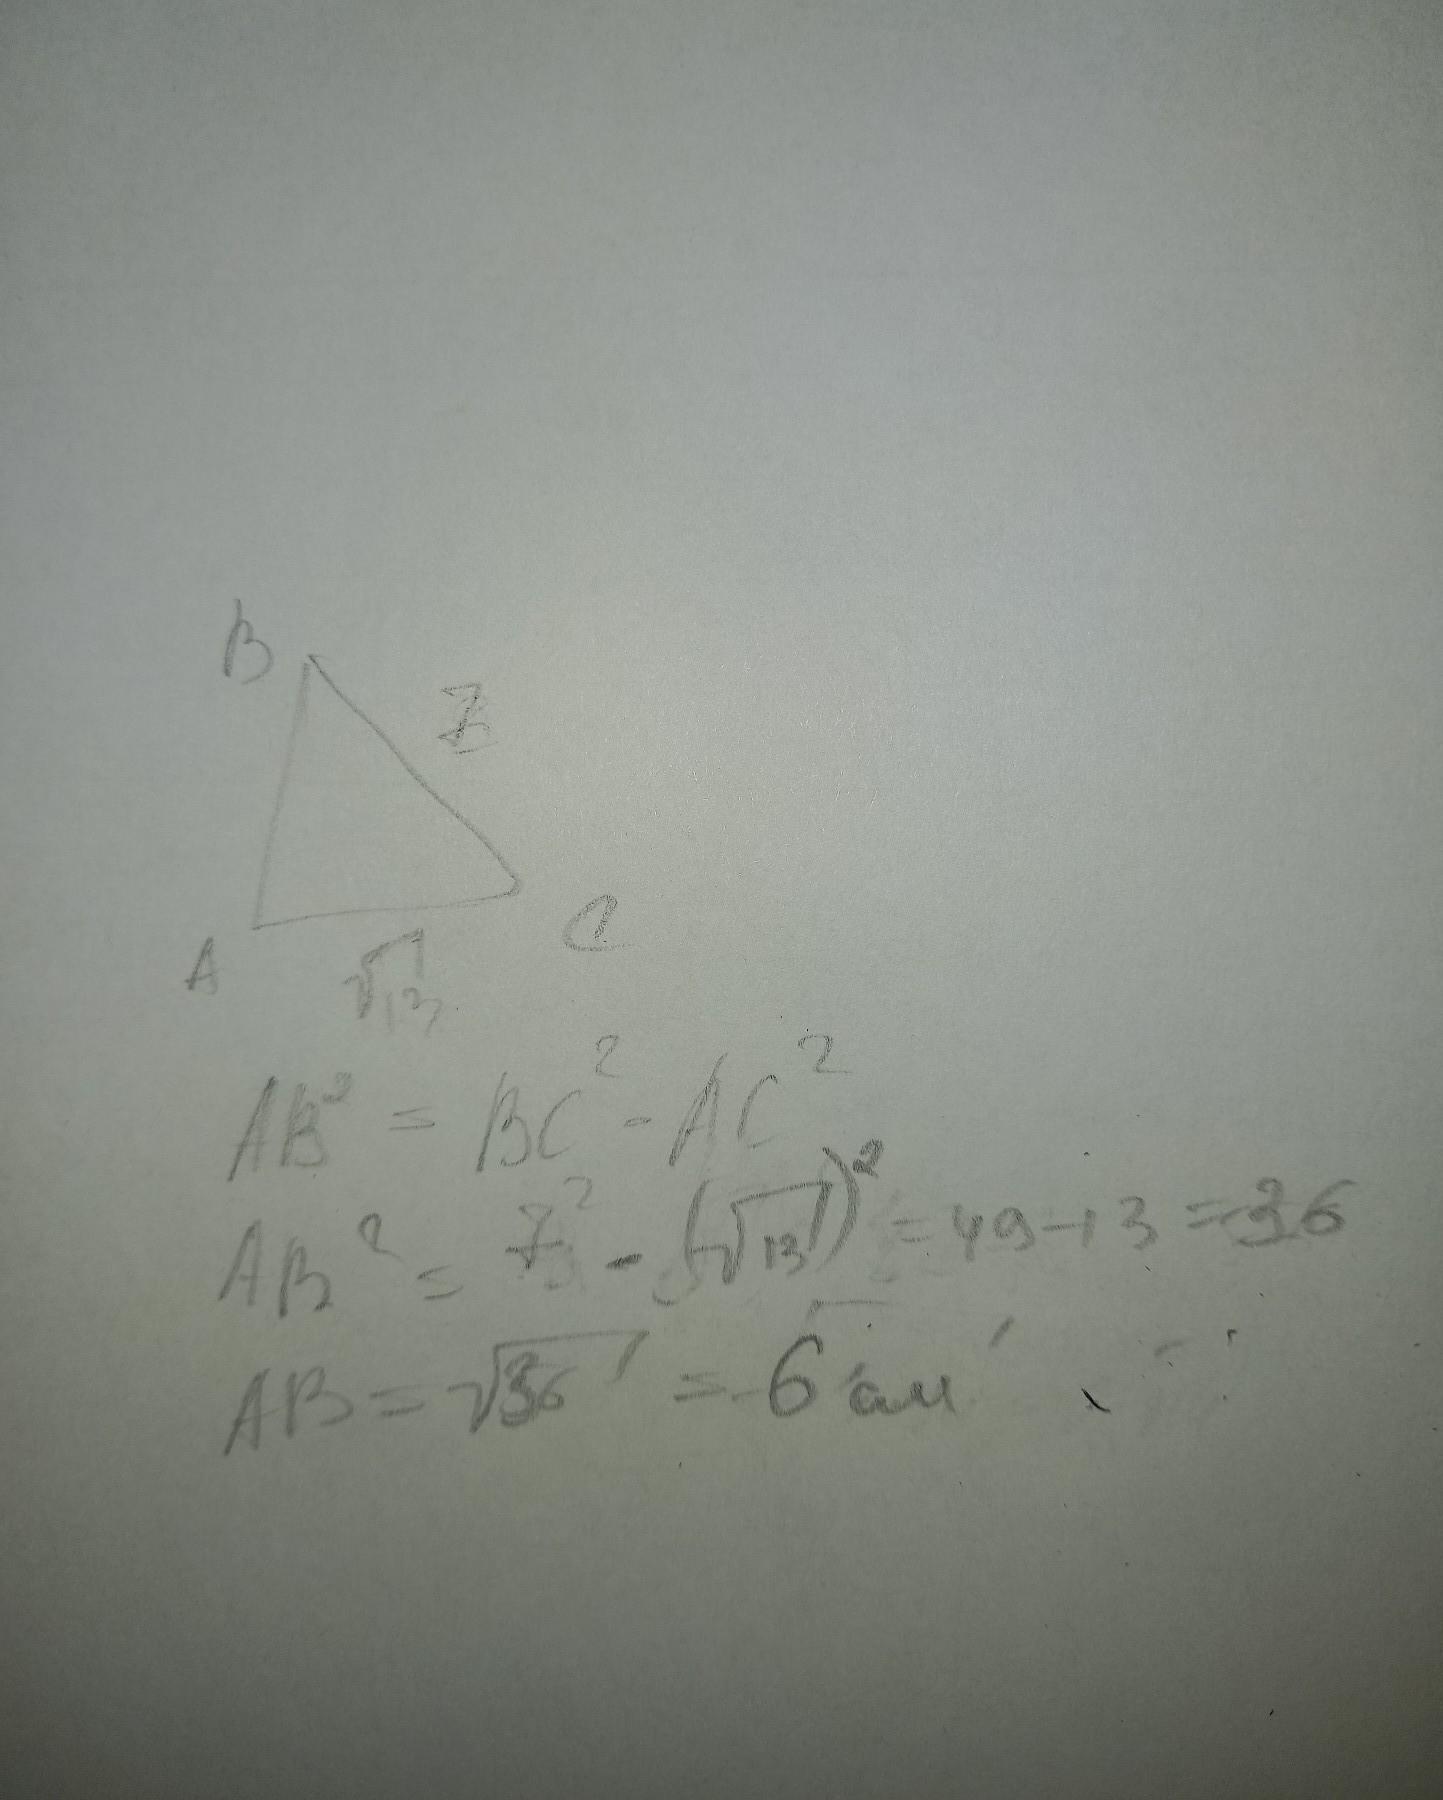 B
7
A
C
√13
AB² = BC² - AC²
AB² = 7² - (√13)² = 49-13 = 36
AB = √36 = 6 см